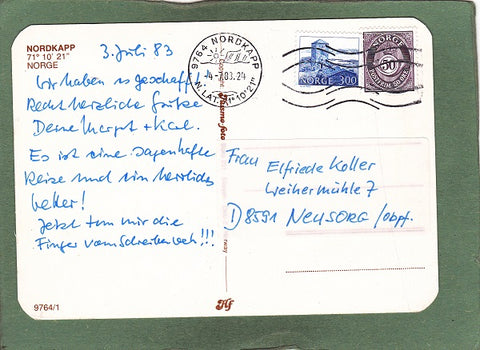 NORDKAPP
71° 10' 21"
NORGE
3. Juli 83
Wir haben es geschafft
Recht herzliche Grüße
Deine Margot + Karl.
Es ist eine sagenhafte
Reise und ein herrliches
Wetter!
Jetzt tun mir die
Finger vom Schreiben weh!!!
9764/1
9764 NORDKAPP
-4-7.83. 24
N.LAT. 71°10'21"
NORGE 300
NORGE
50
Frau Elfriede Koller
Weihermühle 7
D 8591 NEUSORG /Opf.